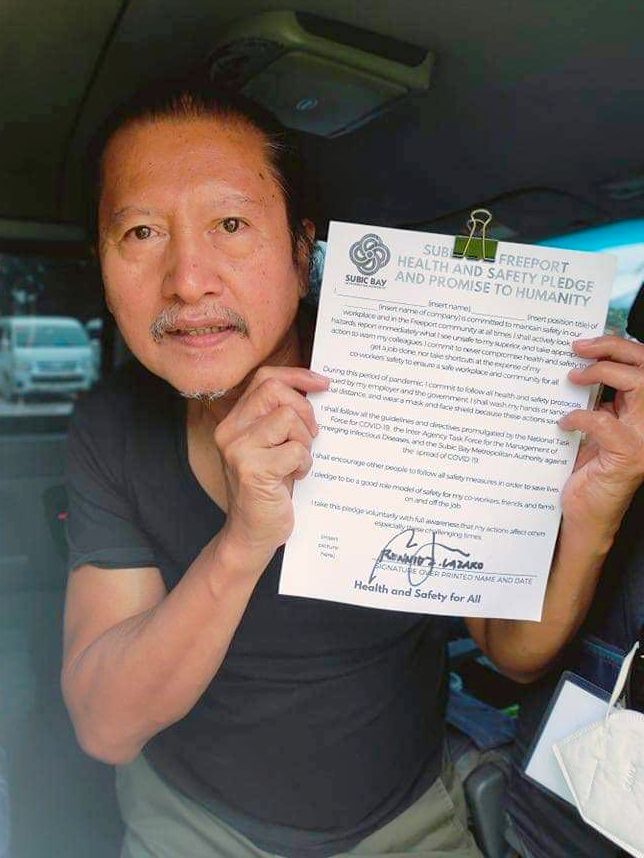 SUBIC BAY
SUBI FREEPORT
HEALTH AND SAFETY PLEDGE
AND PROMISE TO HUMANITY
(insert name) (insert position title) of
(insert name of company) is committed to maintain safety in our
workplace and in the Freeport community at all times. I shall actively look
hazards, report immediately what I see unsafe to my superior, and take
action to warn my colleagues. I commit to never compromise health and safety to
get a job done, nor take shortcuts at the expense of my
co-workers safety to ensure a safe workplace and community for all.
During this period of pandemic, I commit to follow all health and safety protocols
by my employer and the government. I shall wash my hands or
distance, and wear a mask and face shield because these actions
I shall follow all the guidelines and directives promulgated by the National Task
Force for COVID-19, the Inter-Agency Task Force for the Management of
Emerging Infectious Diseases, and the Subic Bay Metropolitan Authority against
the spread of COVID-19.
I shall encourage other people to follow all safety measures in order to save lives.
I pledge to be a good role model of safety for my co-workers, friends and family
on and off the job.
I take this pledge voluntarily with full awareness that my actions affect others
especially these challenging times.
(insert
picture
here)
LAZARO
SIGNATURE OVER PRINTED NAME AND DATE
Health and Safety for All